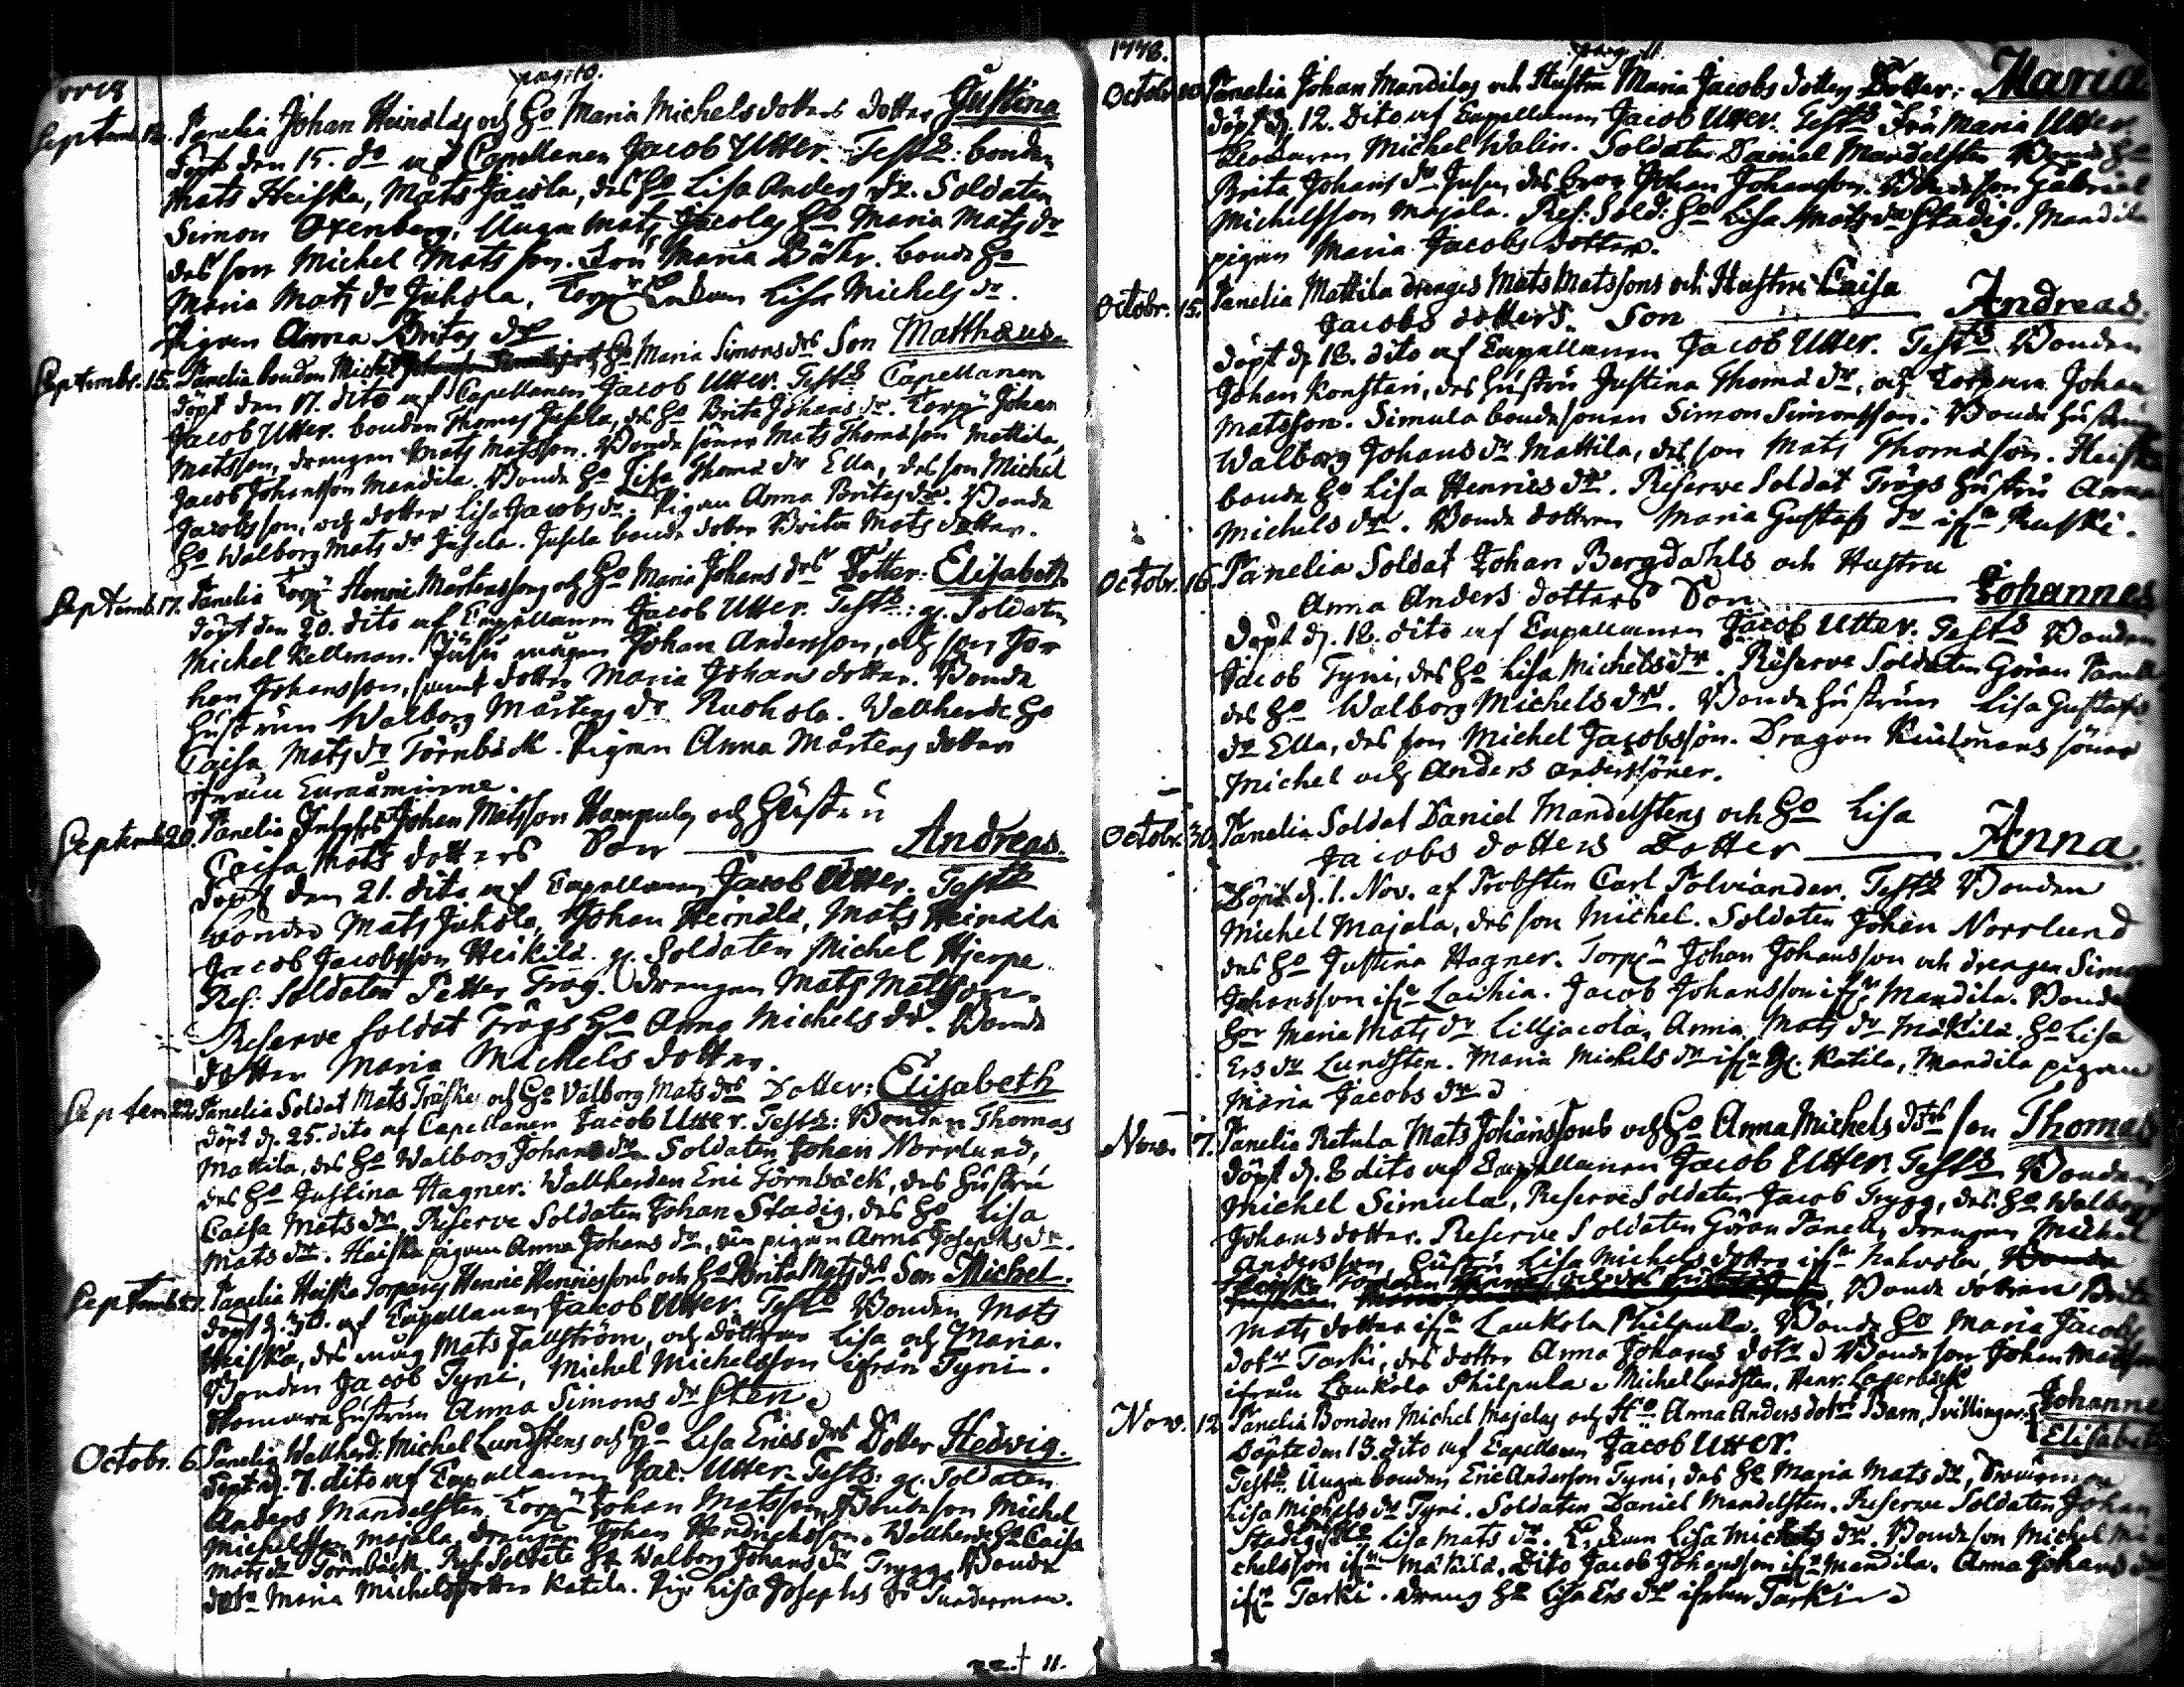 pag. 10.
Septemb. 12. Panelia Johan Heinälas och Ho Maria Michelsdotters dotter Justina
döpt den 15. do af Capellanen Jacob Utter. Test: bonden
Mats Heiska, Mats Jacola, des Ho Lisa Anders dr. Soldaten
Simon Oxenberg. Unga Mats Jacolas Ho Maria Mats dr
des son Michel Mats son. Fru Maria Böhr. bonde Ho
Maria Mats dr Juhola, Enkan Lisa Michels dr.
Pigan Anna Britas dr
Septembr. 15. Panelia bonden Michel Ho Maria Simons drs Son Matthæus
döpt den 17. dito af Capellanen Jacob Utter. Tests Capellanen
Jacob Utter. bonden Thomas Jusela, des Ho Brita Johans dr. Torp Johan
Matsson, drengen Mats Matsson. Bonde sonen Mats Thomasson Mattila,
Jacob Johansson Mandila. Bonde Ho Lisa Thomæ dr Ella, des son Michel
Jacobsson, och dotter Lisa Jacobs dr. Pigan Anna Britas dr. Bonde
Ho Walborg Mats dr Jusela. Jusela bonde dotter Brita Mats dotter.
Septemb. 17. Panelia Torp Henric Mårtenssons och Ho Maria Johans drs Dotter: Elisabeth
döpt den 20. dito af Capellanen Jacob Utter. Tests: g. Soldaten
Michel Kellman. Johan Andersson, och son Jo-
han Johansson, samt dotter Maria Johans dotter. Bonde
hustrun Walborg Mårtens dr Ruohola. Wallherde Ho
Caisa Mats dr Törnbäck. Pigan Anna Mårtens dotter
ifrån Euraåminne.
Septemb. 20. Panelia Johan Matsson Hampulas och Hustru
Caisa Mats dotters Son Andreas.
döpt den 21. dito af Capellanen Jacob Utter. Tests
bonden Mats Juhola, Johan Heinälä, Mats Heinälä
Jacob Jacobsson Heikilä. g. Soldaten Michel Hjerpe
Res: Soldaten Petter Trög. drengen Mats Matsson.
Reserve soldat Trögs Ho Anna Michels dr. Bonde
dotter Maria Michels dotter.
Septem 22. Panelia Soldat Mats Träskes och Ho Valborg Mats drs Dotter: Elisabeth
döpt d. 25. dito af Capellanen Jacob Utter. Tests: Bonden Thomas
Mattila, des Ho Walborg Johans dr Soldaten Johan Norrlund,
des Ho Justina Hagner. Wallherden Eric Törnbäck, des hustru
Caisa Mats dr, Reserve Soldaten Johan Stadig, des Ho Lisa
Mats dr. Heiska pigan Anna Johans dr, pigan Anna Josephs dr.
Septemb 27. Panelia Heiska Torpares Henric Henricssons och Ho Brita Mats drs Son Michel.
döpt d. 30. af Capellanen Jacob Utter. Tests Bonden Mats
Heiska, des måg Mats Fallström, och döttrar Lisa och Maria.
Bonden Jacob Tyni, Michel Michelsson ifrån Tyni.
hustrun Anna Simons dr Sten
Octobr. 6. Panelia Wallherd: Michel Lundstens och Ho Lisa Erics drs Dotter Hedvig.
döpt d. 7. dito af Capellanen Jac. Utter. Tests: g. Soldaten
Anders Mandelsten, Torp Johan Matsson, Bondeson Michel
Michelsson Majala, drengen Johan Hendricksson. Wallherde Ho Caisa
Mats dr Törnbäck. Res Soldate Ho Walborg Johans dr Trygg, Bonde
dotr Maria Michelsdotter Katila. Pig. Lisa Josephs dr
22. + 11.
1778. pag. 11.
Octobr. 10. Panelia Johan Mandilas och Hustru Maria Jacobs dotters Dotter: Maria
döpt d. 12. Dito af Capellanen Jacob Utter. Tests Fru Maria Utter.
Michel Walin. Soldaten Daniel Mandelsten Bonde Ho
Brita Johans dr Jusu, des bror Johan Johansson. Bondeson Gabriel
Michelsson Majala. Res: Sold: Ho Lisa Mats dr Stadig. Mandila
pigan Maria Jacobs dotter.
Octobr. 15. Panelia Mattila drenges Mats Matssons och Hustru Caisa
Jacobs dotters. Son Andreas.
döpt d. 18. dito af Capellanen Jacob Utter. Tests Bonden
Johan Konsteri, des hustru Justina Thomæ dr, och Torparen Johan
Matsson. Simula bondesonen Simon Simonsson. Bonde hustrun
Walborg Johans dr Mattila, des son Mats Thomasson. Heiska
bonde Ho Lisa Henrics dr. Reserve Soldat Trögs hustru Anna
Michels dr. Bonde dottren Maria Gustafs dr ifrn Ruski.
Octobr. 16. Panelia Soldat Johan Bergdahls och Hustru
Anna Anders dotters Son Johannes
döpt d. 18. dito af Capellanen Jacob Utter. Tests Bonden
Jacob Tyni, des Ho Lisa Michels dr. Reserve Soldaten Göran Panell
des Ho Walborg Michels dr. Bonde hustrun Lisa Gustafs
dr Ella, des son Michel Jacobsson. Dragon Kulmans söner
Michel och Anders anderssöner.
Octobr. 30. Panelia Soldat Daniel Mandelstens och Ho Lisa
Jacobs dotters Dotter Anna.
Döpt d. 1. Nov. af Probsten Carl Polviander. Tests Bonden
Michel Majala, des son Michel. Soldaten Johan Norrlund
des Ho Justina Hagner. Torp Johan Johansson och drengen Simon
Johansson ifrn Laihia. Jacob Johansson ifrn Mandila. Bonde
Hor Maria Mats dr Lilljacola, Anna Mats dr Mäkilä. Ho Lisa
Ers dr Lundsten. Maria Michels dr ifrn Katila, Mandila pigan
Maria Jacobs dr
Nov. 7. Panelia Retula Mats Johanssons och Ho Anna Michels dotrs son Thomas
döpt d. 8 dito af Capellanen Jacob Utter. Tests Bonden
Michel Simula, Reserve Soldaten Jacob Trygg, des Ho Walborg
Johans dotter. Reserve Soldaten Göran Panell, drengen Michel
Andersson, hustru Lisa Michels dotter ifrn
Bonde dottren Brita
Mats dotter ifrn Laukola Philpula. Bonde Ho Maria Jacobs
dotr Tarki, des dotter Anna Johans dotr Bondeson Johan Matsson
ifrån Laukola Philpula. Michel Lundsten, Henr. Lagerbäck
Nov. 12 Panelia Bonden Michel Majalas och Ho Anna Anders dotrs Barn, Tvillingar. Johannes
Elisabet
Döpte den 13. dito af Capellanen Jacob Utter.
Tests. Unga bonden Eric Andersson Tyni, des Ho Maria Mats dr,
Lisa Michels dr Tyni. Soldaten Daniel Mandelsten. Reserve Soldaten Johan
Stadig, des Ho Lisa Mats dr. Enkan Lisa Michels dr. Bondeson Michel Mi-
chelsson ifrn Mäkilä. Dito Jacob Johansson ifrn Mandila. Anna Johans dr
ifrn Tarki. Dreng Ho Lisa Ers dr ifrån Tarki